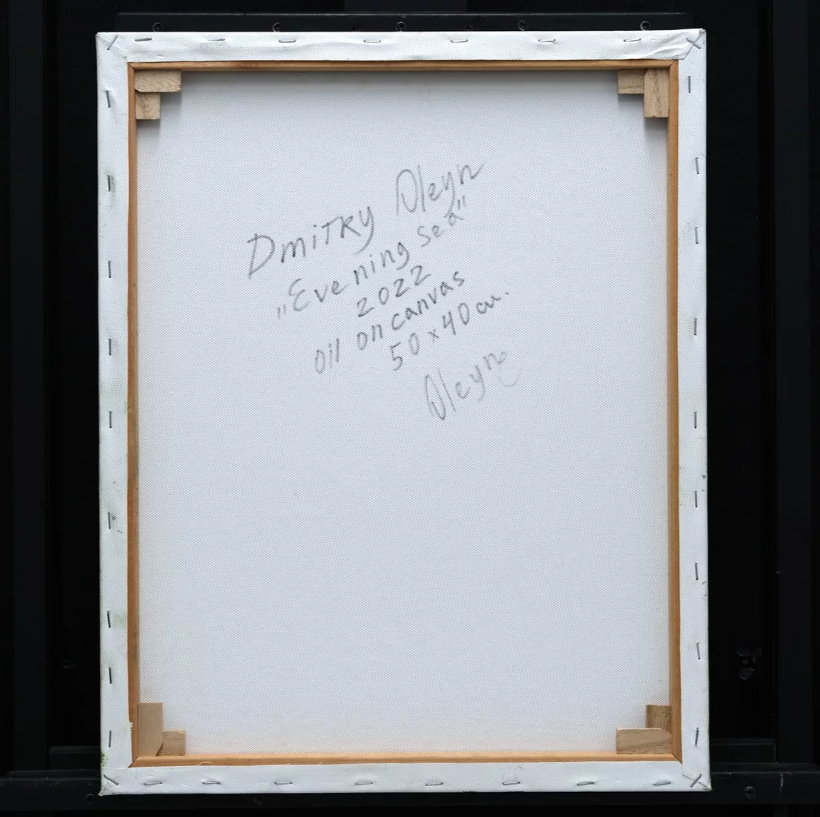 Dmitry Oleyn
„Evening sea"
2022
oil on canvas
50 x 40 cm.
Oleyn